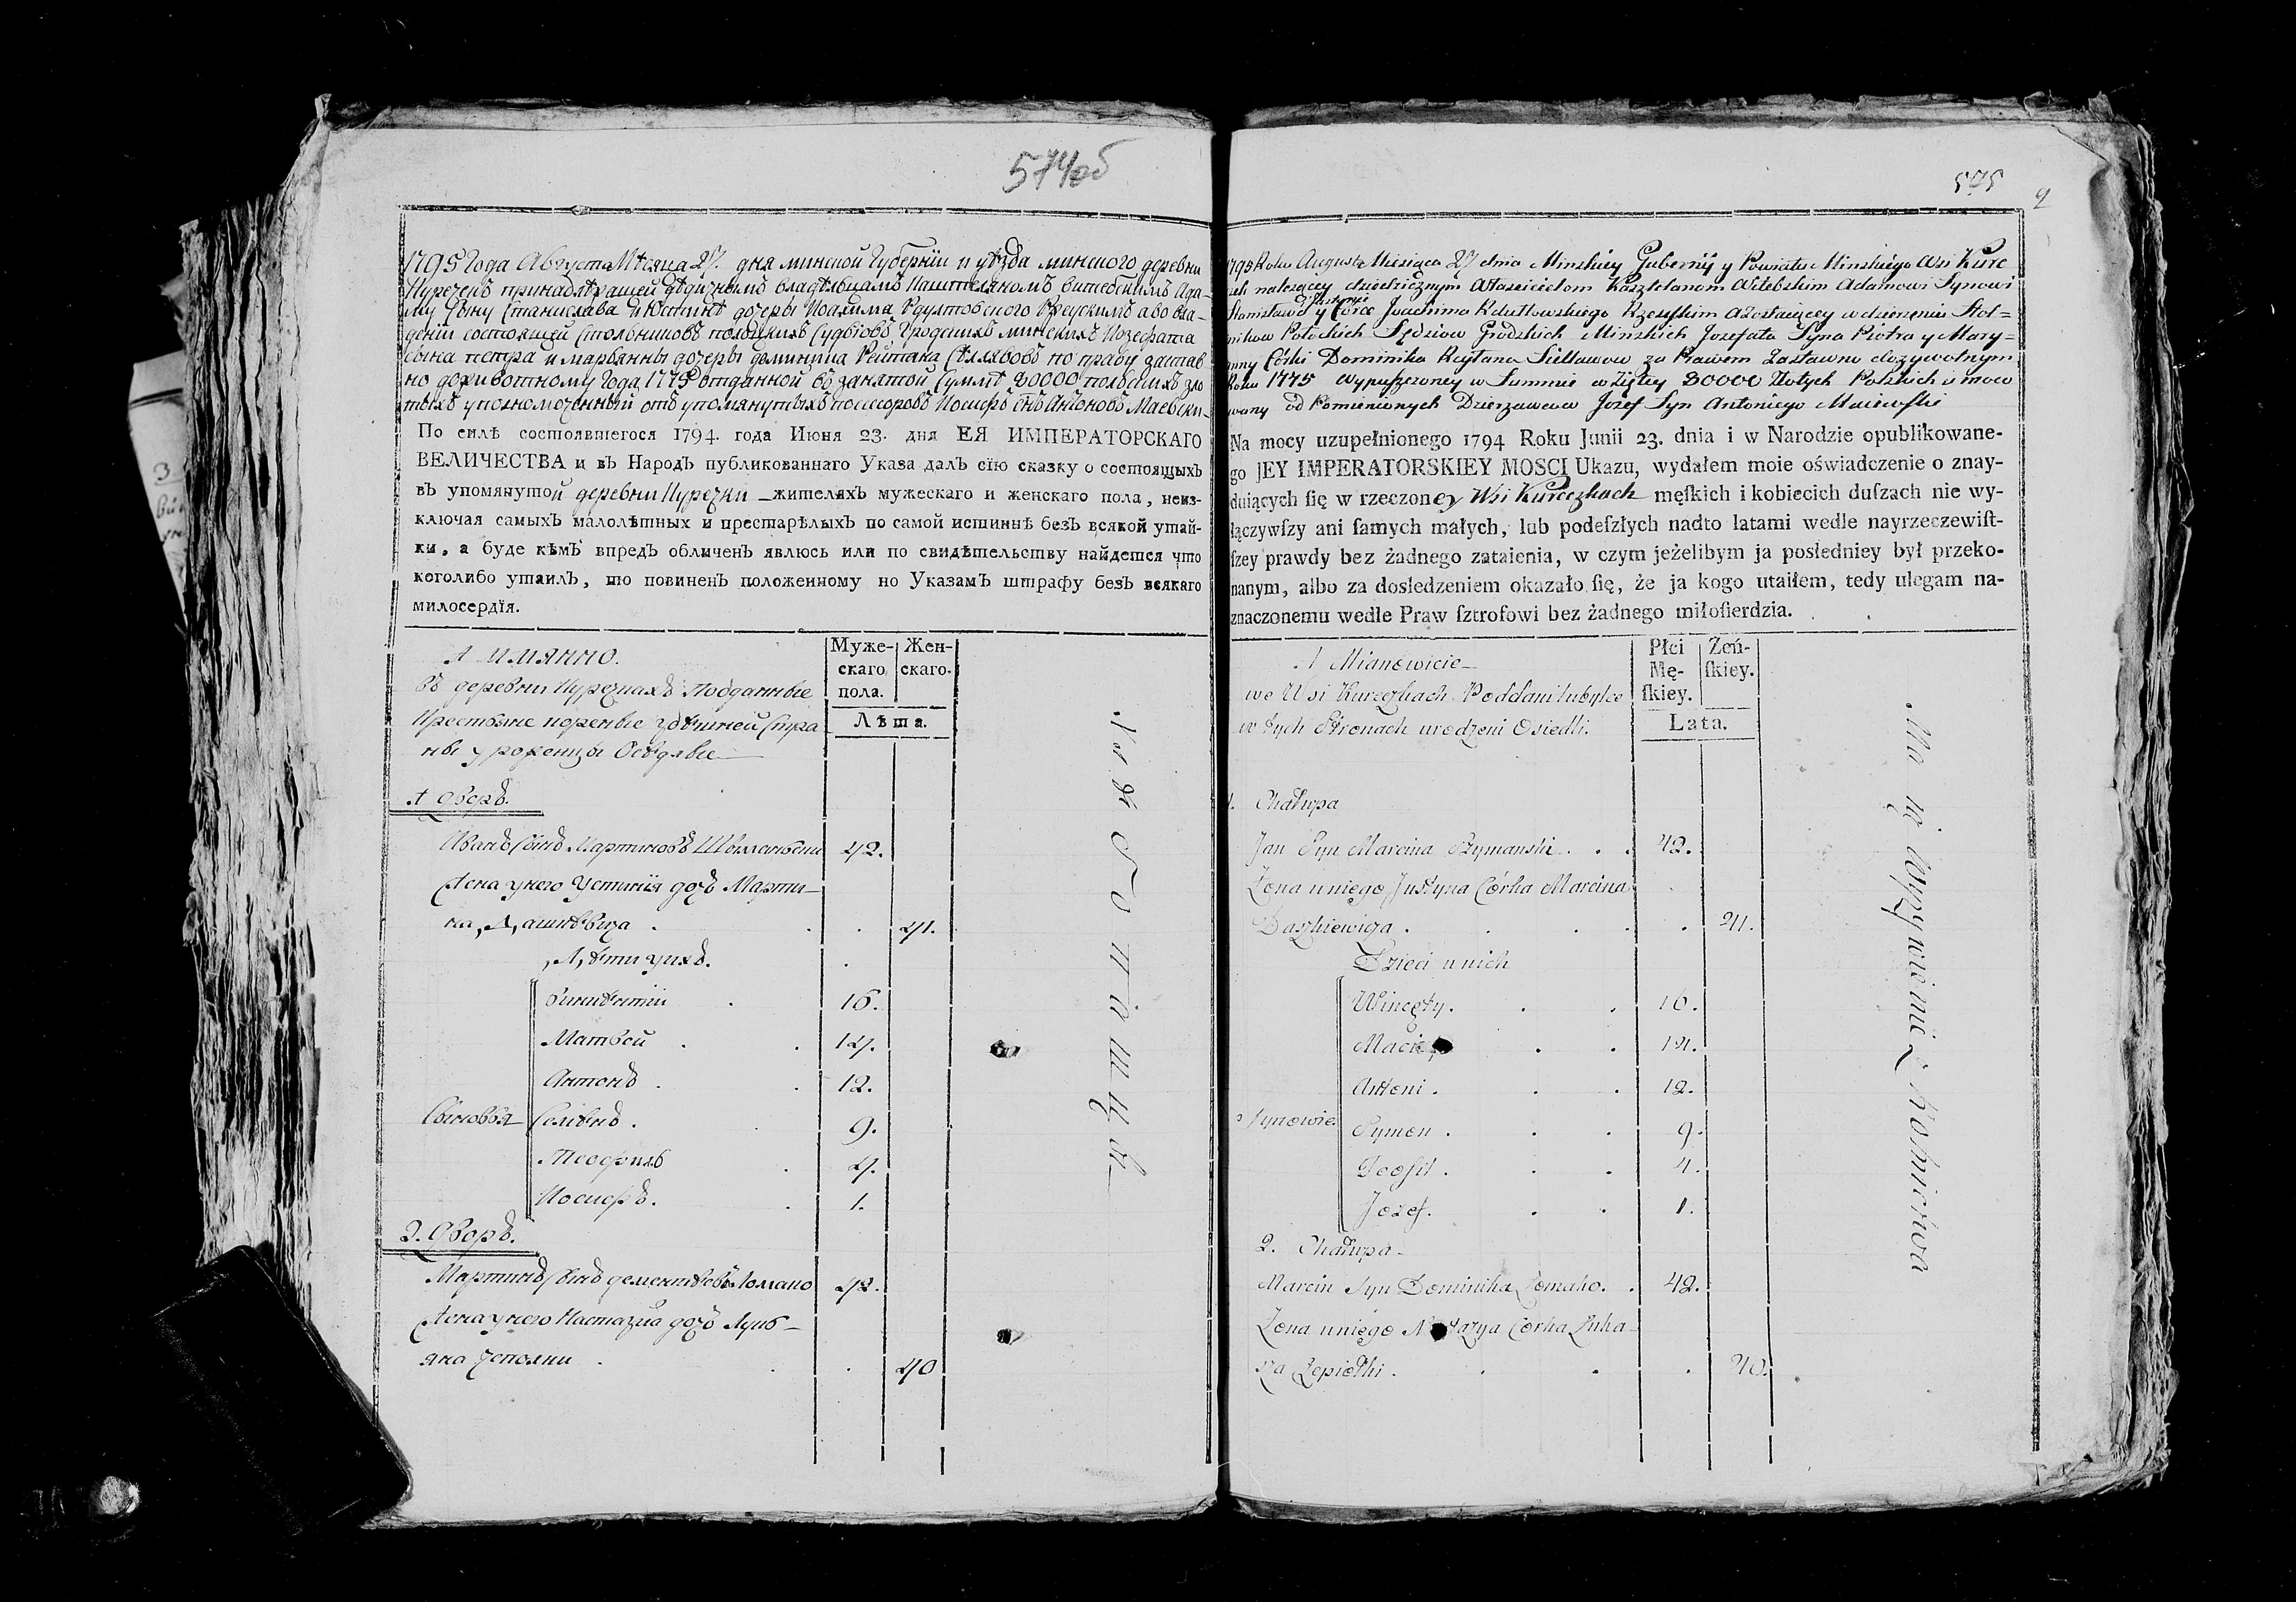 574об
1795 Года Августа Мѣсяца 27. дня минской Губернїи и уѣзда минского деревни
Куречекъ принадлѣжащей дѣдизнымъ владѣльцамъ Каштеляномъ витебскимъ Ада-
му Сыну Станислава и Юстинѣ дочеры Иоахима Рдултовского Ржеускимъ а во вла-
дѣнїи состоящей Стольниковъ полоцкихъ Судьювъ Гродскихъ минскихъ Иозефата
сына петра и марьянны дочеры доминика Рейтана Селлявовъ по праву застав
но доживотному Года 1775 отданной въ занятой Суммѣ 80000 польскихъ зло
тыхъ уполномоченный отъ упомянутыхъ посесоровъ Иосифъ снъ Антоновъ Маевски
По силѣ состоявшегося 1794. года Июня 23. дня ЕЯ ИМПЕРАТОРСКАГО
ВЕЛИЧЕСТВА и въ Народъ публикованнаго Указа далъ сїю сказку о состоящыхъ
въ упомянутой деревни Куречки жителяхъ мужескаго и женскаго пола, неиз-
ключая самыхъ малолѣтныхъ и престарѣлыхъ по самой истиннѣ безъ всякой утай-
ки, а буде кѣмъ впредъ обличенъ явлюсь или по свидѣтельству найдется что
коголибо утаилъ, то повиненъ положенному по Указамъ штрафу безъ всякаго
милосердїя.
А имянно.
въ деревни Куречкахъ Подданные
Крестьяне коренные здѣшней Стра
ны уроженцы Осѣдлые
Муже-
скаго
пола.
Жен-
скаго.
Лѣта.
1 Дворъ.
Иванъ Сынъ Мартиновъ Шымански 42.
Жена унего Устинїя дочъ Марти-
на Дашкевича . . . 41.
Дѣти унихъ.
Сыновья
Викентїи . 16.
Матвей . . 14.
Антонъ . . 12.
Семенъ . . 9.
Теофилъ . 4.
Иосифъ. . 1.
2. Дворъ.
Мартинъ Сынъ дементьевъ Ломако 42.
Жена унего Настазиа дочъ Лукь-
яна чеполки . . . 40
575
2
1795 Roku Augusta Miesiąca 27 dnia Minskiey Gubernij y Powiatu Minskiego Wsi Kure
nalezącey dziedzicznym Właścicielom Kasztelanom Witebskim Adamowi Synowi
Justynie
Stanisława y Corce Joachima Rdułtowskiego Rzeuskim a zostaiącey w dzierzeniu Stol=
nikow Połockich Sędziow Grodzkich Minskich Jozefata Syna Piotra y Mary=
anny Córki Dominika Reytana Siellawow za Prawem Zastawno dożywotnym
Roku 1775 wypuszczoney w Summie wziętey 80000 Złotych Polskich umoco
wany od Pomienionych Dzierzawcow Jozef Syn Antoniego Maiewski
Na mocy uzupełnionego 1794 Roku Junii 23. dnia i w Narodzie opublikowane-
go JEY IMPERATORSKIEY MOSCI Ukazu, wydałem moie oświadczenie o znay-
duiących ſię w rzeczoney Wsi Kureczkach męſkich i kobiecich duſzach nie wy-
łączywſzy ani ſamych małych, lub podeſzłych nadto latami wedle nayrzeczewiſt-
ſzey prawdy bez żadnego zataienia, w czym jeżelibym ja posledniey był przeko-
nanym, albo za dosledzeniem okazało ſię, że ja kogo utaiłem, tedy ulegam na-
znaczonemu wedle Praw ſztrofowi bez żadnego miłoſierdzia.
A Mianowicie
we Wsi Kureczkach Poddani tubylce
w tych Stronach urodzeni Osiedli.
Płci
Mę-
ſkiey.
Żeń-
ſkiey.
Lata.
1. Chałupa
Jan Syn Marcina Szymanski . . . 42.
Żona uniego Justyna Córka Marcina
Daszkiewicza . . . . . 41.
Dzieci u nich
Synowie
Wincęty. . . 16.
Maciey . . 14.
Antoni . . . 12.
Symon . . . 9.
Teofil . . . 4.
Jozef. . . 1.
2. Chałupa
Marcin Syn Dominika Łomako. . 42.
Żona uniego Nastazya Corka Łuka-
sza Czepiołki . . . . 40.